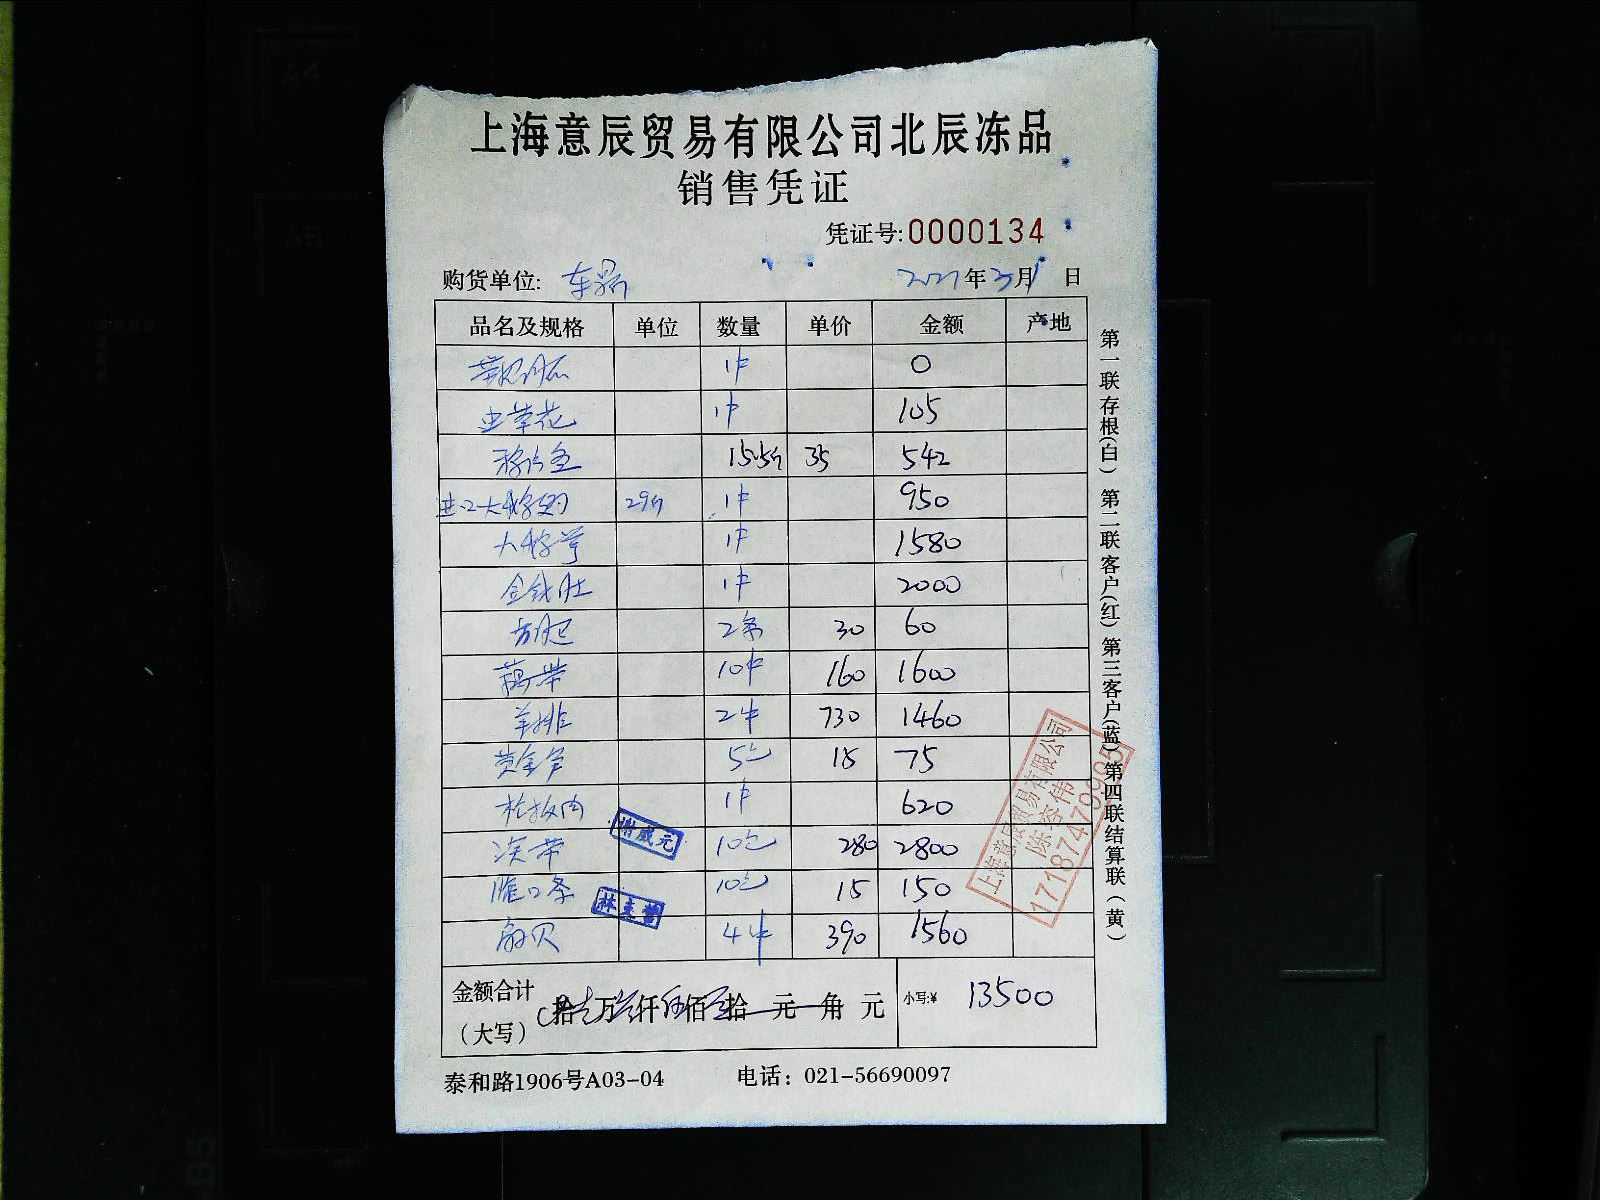 上海意辰贸易有限公司北辰冻品
销售凭证
凭证号:0000134
购货单位: 2021年3月1日
品名及规格 单位 数量 单价 金额 产地
1件 0
虫草花 1件 105
15.5斤 35 542
29斤 1件 950
1件 1580
金钱肚 1件 2000
2条 30 60
藕带 10件 160 1600
羊排 2件 730 1460
黄金笋 5包 15 75
1件 620
10包 280 2800
10包 15 150
扇贝 4件 390 1560
金额合计
(大写)
拾壹万叁仟伍佰零拾元角元 小写:¥ 13500
泰和路1906号A03-04 电话：021-56690097
第一联存根(白) 第二联客户(红) 第三客户(蓝) 第四联结算联(黄)
谢威元
上海意辰贸易有限公司
17187479995